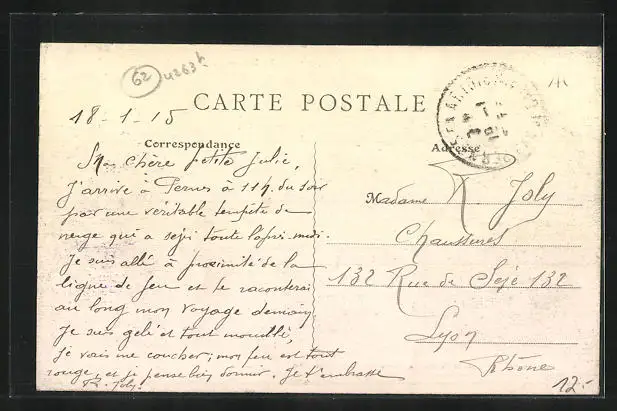 62 4263h
CARTE POSTALE
18-1-15
Correspondance
Adresse
Ma chère petite Julie,
J'arrive à Pernes à 11h. du soir
par une véritable tempête de
neige qui a sévi toute l'après-midi.
Je suis allé à proximité de la
ligne de feu et te raconterai
au long mon voyage demain
Je suis gelé et tout mouillé,
je vais me coucher; mon feu est tout
rouge, et je pense bien dormir. Je t'embrasse
R. Joly.
Madame R. Joly
Chaussures
132 Rue de Sèze 132
Lyon
Rhône
12.-